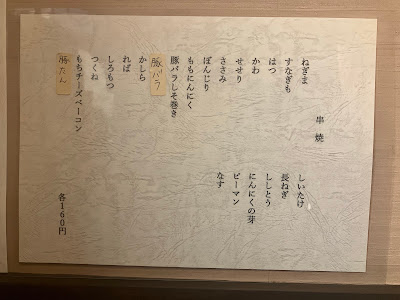 串焼
ねぎま
すなぎも
はつ
かわ
せせり
ささみ
ぼんじり
ももにんにく
豚バラしそ巻き
豚バラ
かしら
ればー
しろもつ
つくね
もちチーズベーコン
豚たん
しいたけ
長ねぎ
ししとう
にんにくの芽
ピーマン
なす
各160円